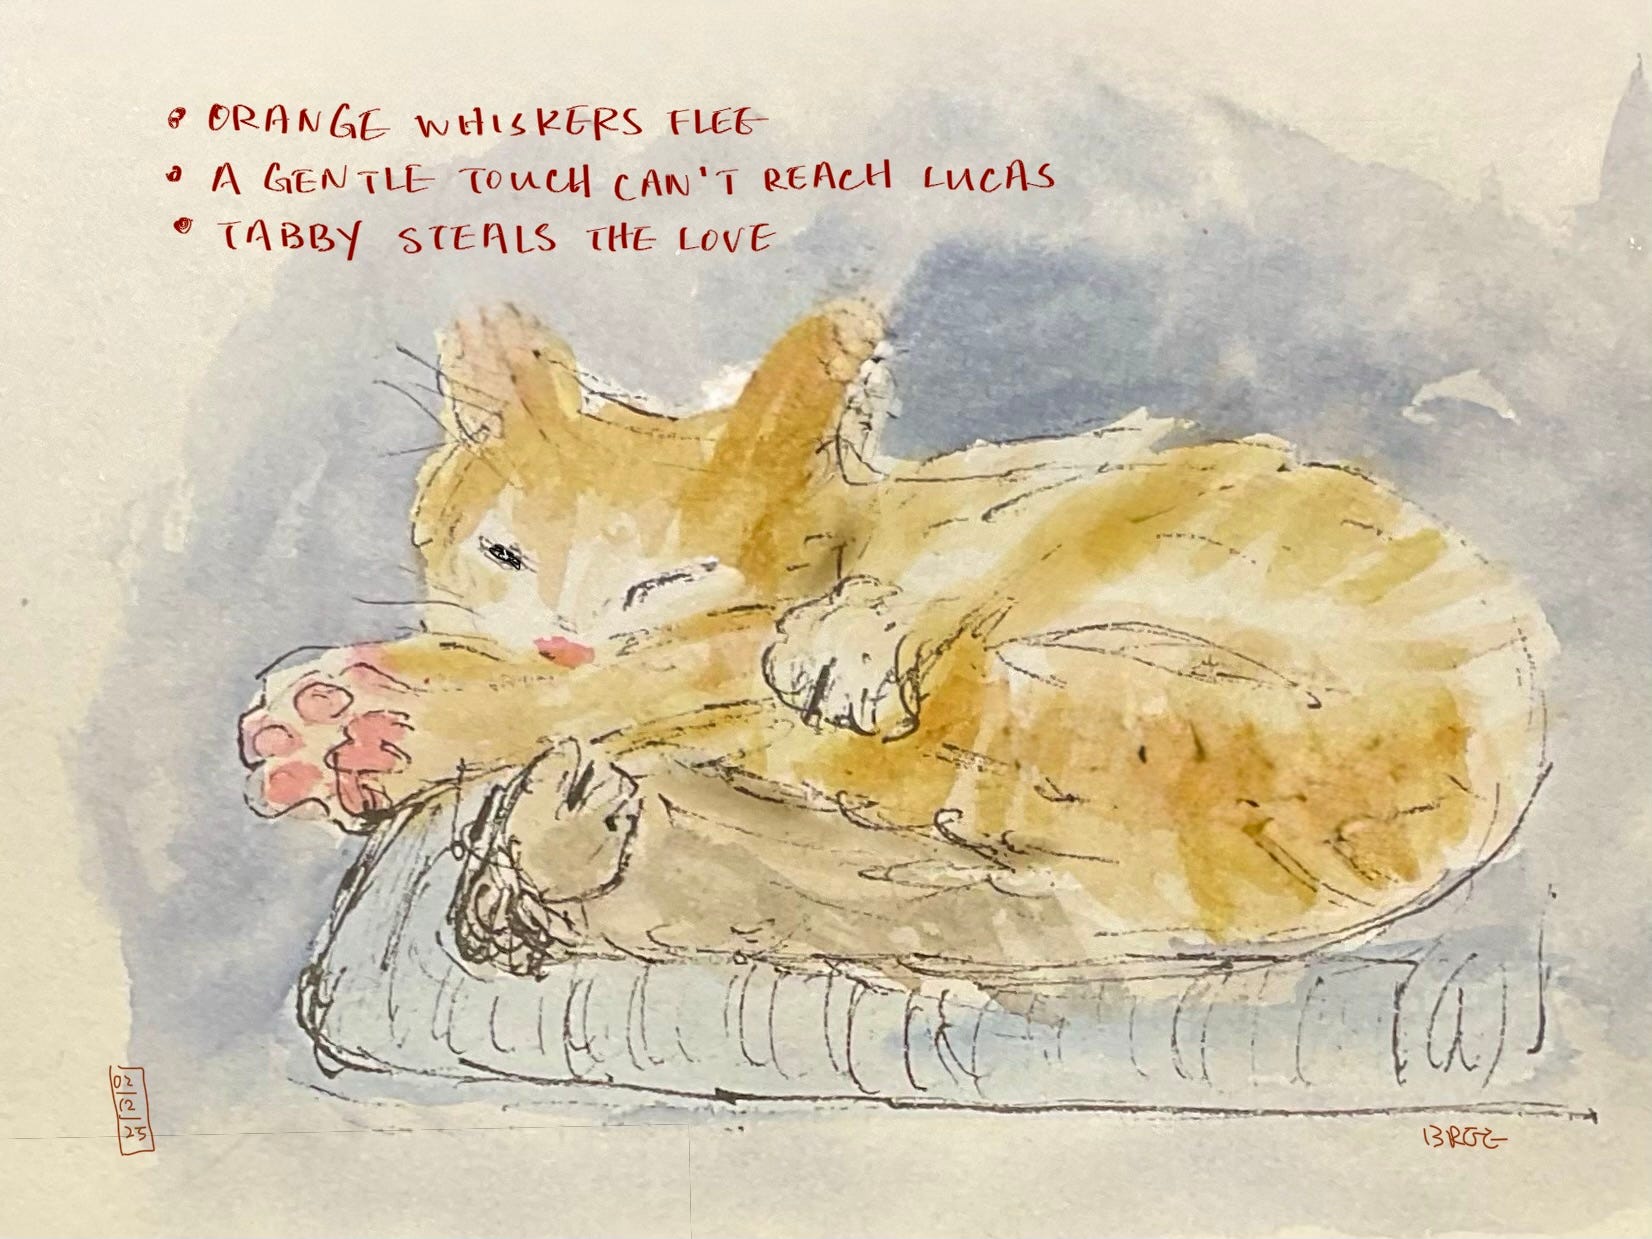 • ORANGE WHISKERS FLEE
• A GENTLE TOUCH CAN'T REACH LUCAS
• TABBY STEALS THE LOVE
02
12
25
BREE